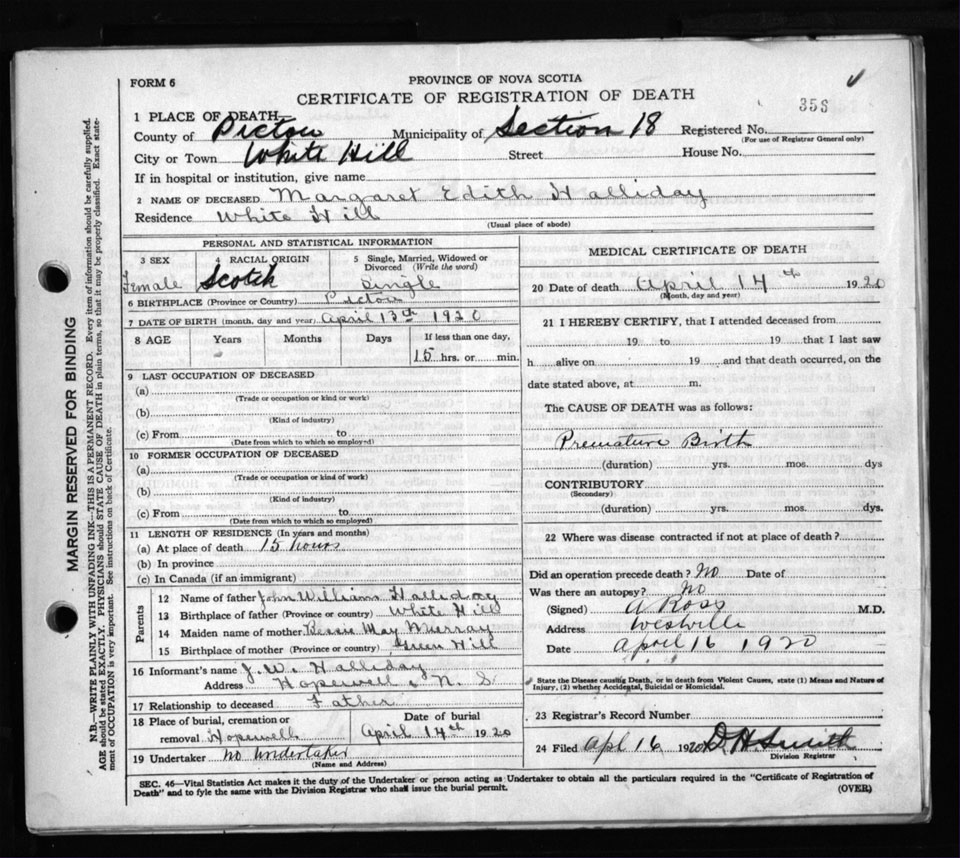 FORM 6
PROVINCE OF NOVA SCOTIA
CERTIFICATE OF REGISTRATION OF DEATH
35
1 PLACE OF DEATH
County of Pictou Municipality of Section 18 Registered No.
(For use of Registrar General only)
City or Town White Hill Street House No.
If in hospital or institution, give name
2 NAME OF DECEASED Margaret Edith Halliday
Residence White Hill
(Usual place of abode)
PERSONAL AND STATISTICAL INFORMATION
3 SEX 4 RACIAL ORIGIN 5 Single, Married, Widowed or Divorced (Write the word)
Female Scotch Single
6 BIRTHPLACE (Province or Country) Pictou
7 DATE OF BIRTH (month, day and year) April 13th 1920
8 AGE Years Months Days If less than one day,
15 hrs. or min.
9 LAST OCCUPATION OF DECEASED
(a)
(Trade or occupation or kind or work)
(b)
(Kind of industry)
(c) From to
(Date from which to which so employed)
10 FORMER OCCUPATION OF DECEASED
(a)
(Trade or occupation or kind of work)
(b)
(Kind of industry)
(c) From to
(Date from which to which so employed)
11 LENGTH OF RESIDENCE (In years and months)
(a) At place of death 15 hours
(b) In province
(c) In Canada (if an immigrant)
Parents
12 Name of father John William Halliday
13 Birthplace of father (Province or country) White Hill
14 Maiden name of mother Bessie May Murray
15 Birthplace of mother (Province or country) Green Hill
16 Informant's name J. W. Halliday
Address Hopewell N. S
17 Relationship to deceased Father
18 Place of burial, cremation or removal Hopewell Date of burial April 14th 1920
19 Undertaker No Undertaker
(Name and Address)
MEDICAL CERTIFICATE OF DEATH
20 Date of death April 14th 1920
(Month, day and year)
21 I HEREBY CERTIFY, that I attended deceased from
19 to 19 that I last saw
h alive on 19 and that death occurred, on the
date stated above, at m.
The CAUSE OF DEATH was as follows:
Premature Birth
(duration) yrs. mos. dys
CONTRIBUTORY
(Secondary)
(duration) yrs. mos. dys.
22 Where was disease contracted if not at place of death?
Did an operation precede death? No Date of
Was there an autopsy? No
(Signed) A Ross M.D.
Address Westville
Date April 16 1920
State the Disease causing Death, or in death from Violent Causes, state (1) Means and Nature of
Injury, (2) whether Accidental, Suicidal or Homicidal.
23 Registrar's Record Number
24 Filed Apl 16 1920 D H Smith
Division Registrar
SEC. 46—Vital Statistics Act makes it the duty of the Undertaker or person acting as Undertaker to obtain all the particulars required in the "Certificate of Registration of
Death" and to fyle the same with the Division Registrar who shall issue the burial permit.
(OVER)
MARGIN RESERVED FOR BINDING
N.B.—WRITE PLAINLY WITH UNFADING INK—THIS IS A PERMANENT RECORD. Every item of information should be carefully supplied.
AGE should be stated EXACTLY. PHYSICIANS should STATE CAUSE OF DEATH in plain terms, so that it may be properly classified. Exact state-
ment of OCCUPATION is very important. See instructions on back of Certificate.